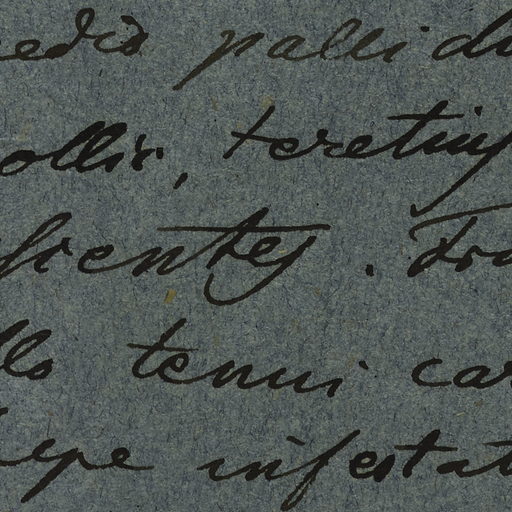 edis pallidi
ollis, teretius
tes. Fra
llo tenui car
epe infestat